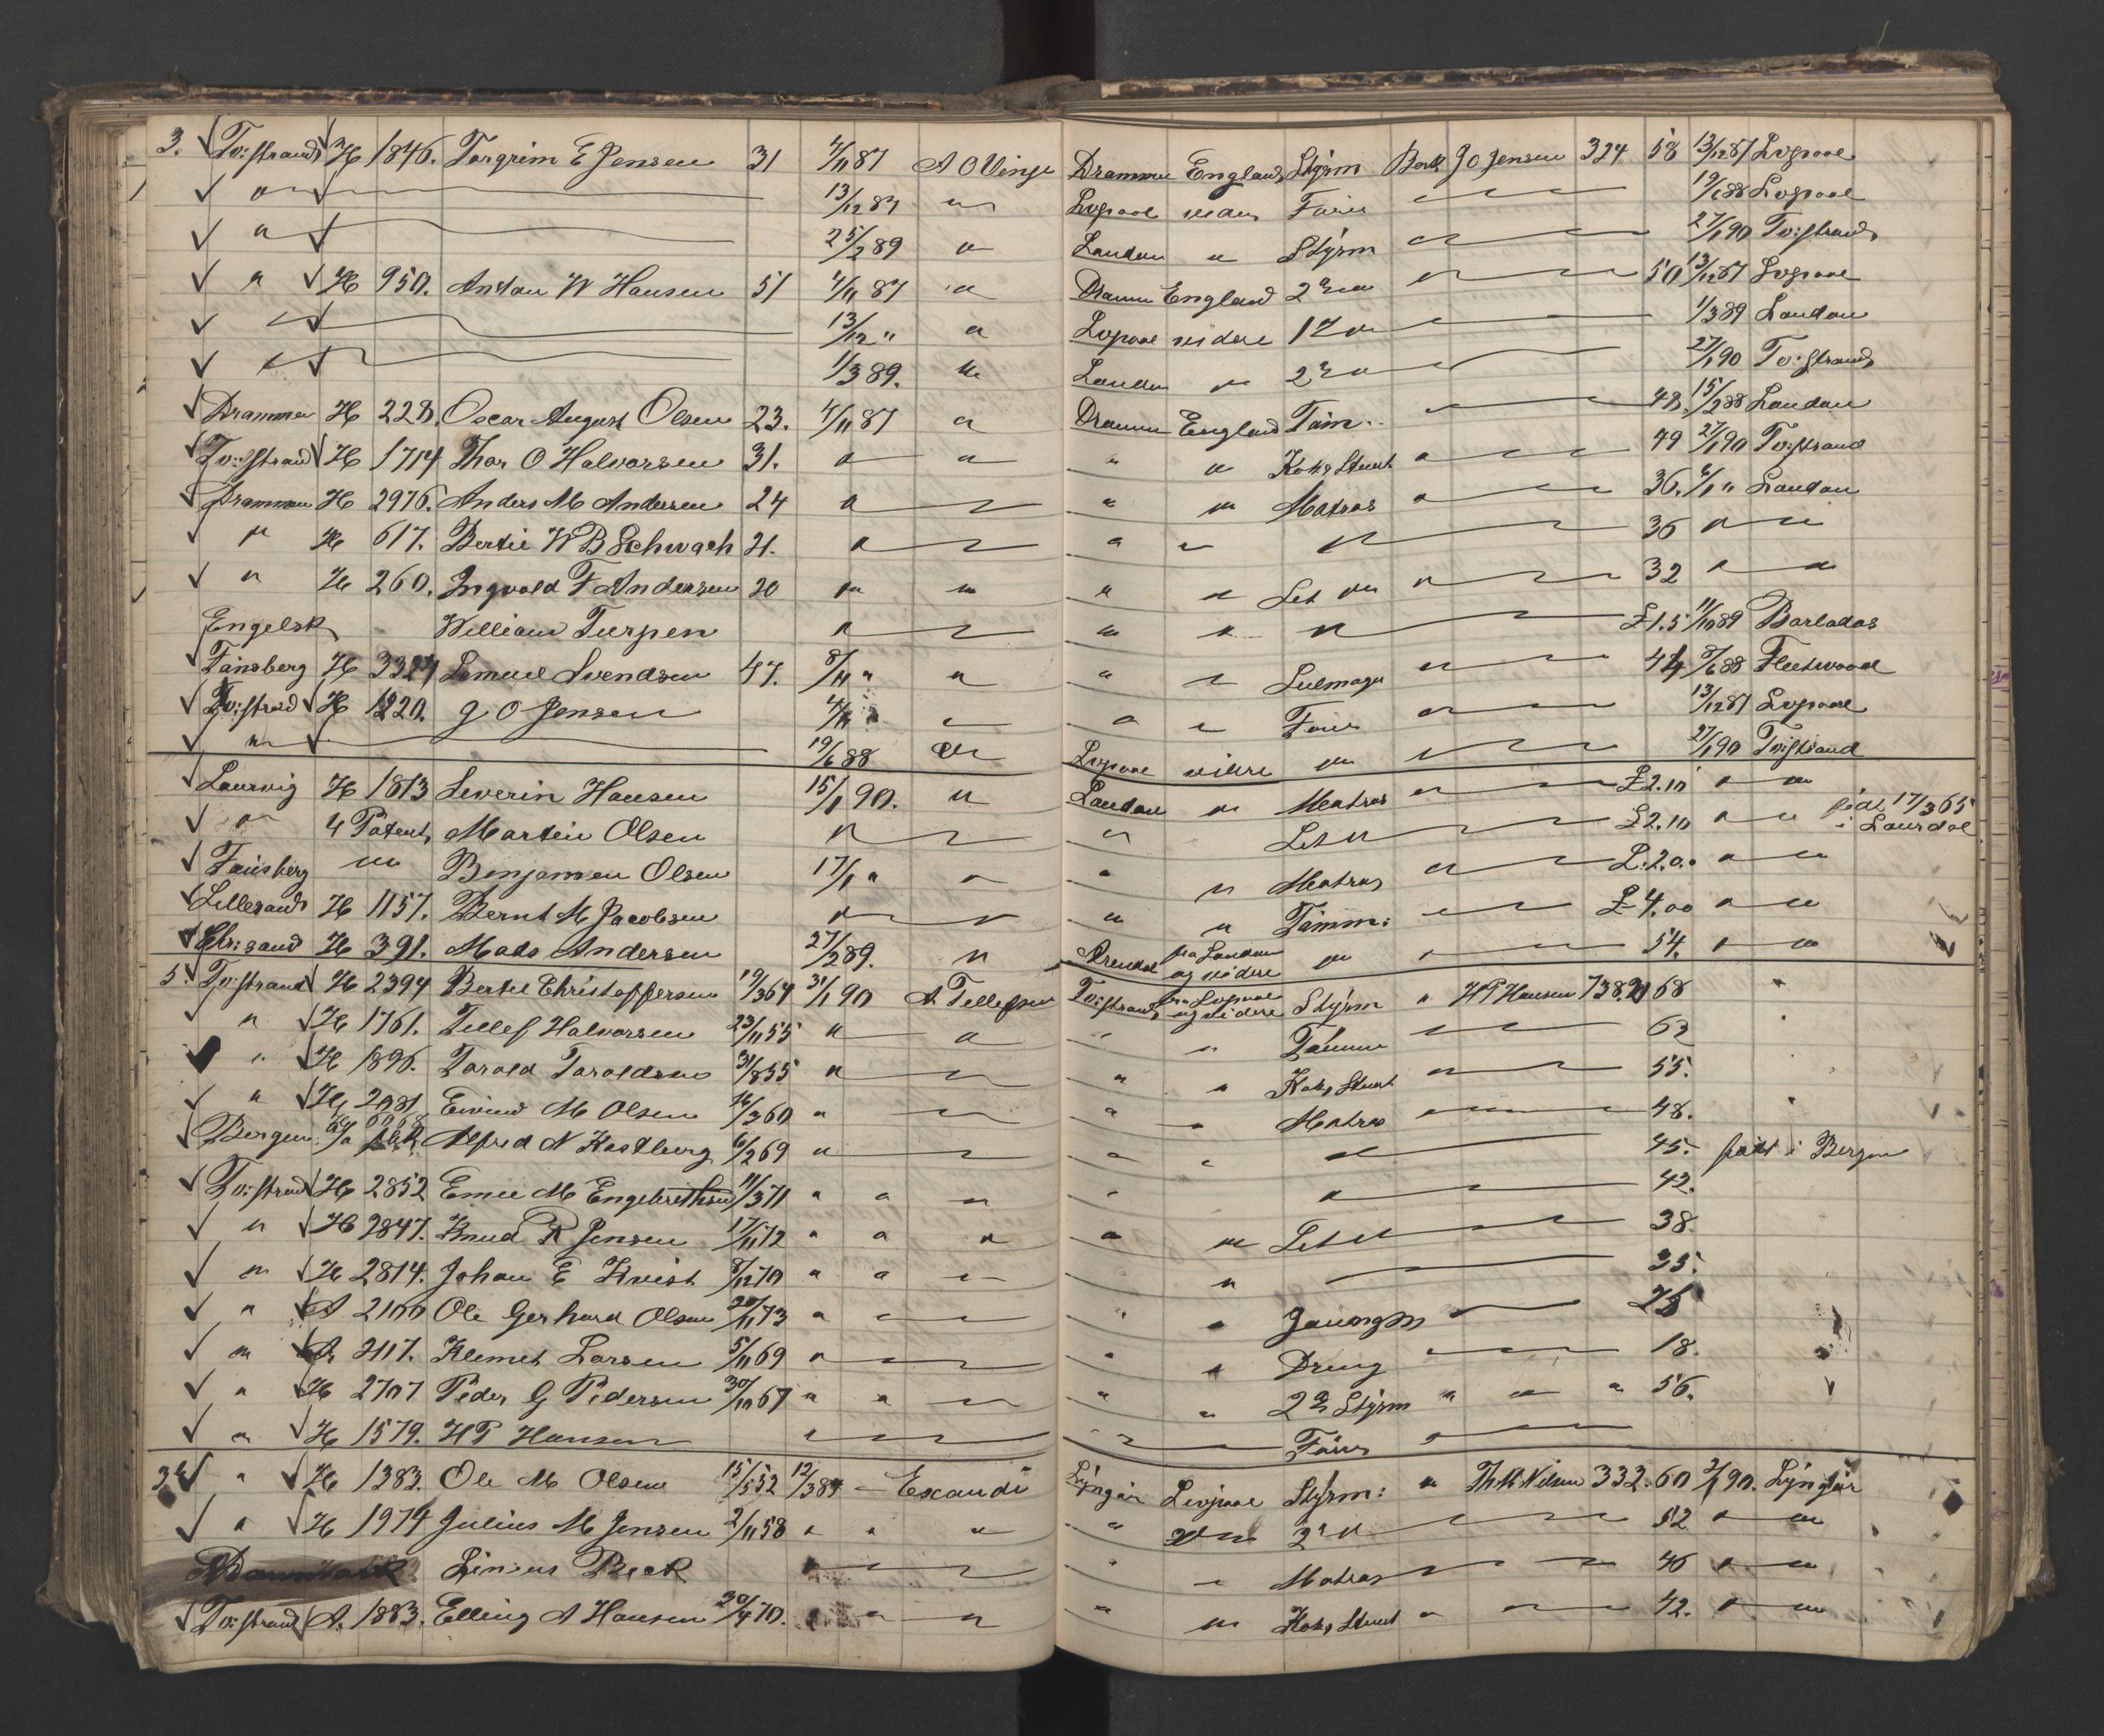 3. Tv:strand H 1846. Torgrim E Jensen 31 4/11 87 A O Vinje Drammen England Styrm Bark J O Jensen 324 58 13/12 87 Lvpool
" 13/12 87 " Lvpool videre Fører 19/6 88 Lvpool
" 25/2 89 " London " Styrm 27/1 90 Tv:strand
" H 950. Anton W Hansen 51 4/11 87 " Dramm England 2den 50 13/12 87 Lvpool
13/12 " " Lvpool videre 1st 1/3 89 London
1/3 89. " London " 2den 27/1 90 Tv:strand
Drammen H 228. Oscar August Olsen 23. 4/11 87 " Dramm England Tøm. 48. 15/2 88 London
Tv:strand H 1714 Thor O Halvorsen 31. " " " " Kok & Stuert " 49 27/1 90 Tv:strand
Drammen H 2976. Anders M Andersen 24 " " " Matros " 36. " London
" H 617. Bertie W B Schwach 21. " " " 36 " "
" H 260. Ingvald F Andersen 20 " " " " Let " " 32 " "
Engelsk William Turpen " " " " £1.5 11/10 89 Barbados
Tønsberg H 3324 Lemuel Svendsen 47. 8/11 " " " " Seilmager " 44 8/6 88 Fleetwood
Tv:strand H 1220. J O Jensen 4/11 " " " " Fører " 13/12 87 Lvpool
" 19/6 88 " Lvpool videre " " 27/1 90 Tv:strand
Laurvig H 1813 Severin Hansen 15/1 90. " London " Matros " £2.10 " "
" 4 Patent Martin Olsen " " Let M £2.10 " " født 17/3 65 i Laurdal
Tønsberg " Benjamen Olsen 17/1 " " " " Matros " £.2.0. " "
Lillesand H 1157. Bernt M Jacobsen " " " Tømm: £4.00 " "
Chr:sand H 391. Mads Andersen 27/2 89. " Arendal fra London og videre " " 54. " "
5. Tv:strand H 2394 Bertel Christoffersen 19/3 64 31/1 90 A Tellefsen Tv:strand fra Lvpool og videre Styrm " H P Hansen 738.21 68 "
" H 1761. Tellef Halvorsen 23/11 55 " " " " Tømm 62
" H 1896. Tarald Taraldsen 31/8 55 " " " Kok & Stuert 55.
" H 2081 Eivind M Olsen 16/3 60 " " " Matros 48.
Bergen Alfred N Kastberg 6/2 69 " " " 45. født i Bergen
Tv:strand H 2852 Emil M Engebrethsen 11/3 71 " " " " " 42.
" H 2847. Knud R Jensen 17/11 72 " " " " " Let M 38.
" H 2814. Johan E Kvist 8/12 70 " " " " 35.
" A 2100 Ole Gerhard Olsen 20/11 73 " " " Jungm 25
" A 2117. Klemet Larsen 5/11 69 " " " Dreng 18.
" H 2707 Peder G Pedersen 30/10 67 " " " " 2den Styrm " " " 56.
" H 1579. H P Hansen " Fører
3 " H 1383. Ole M Olsen 15/5 52 12/3 89 Escandi Lyngør Lvpool Styrm: " Th M Nilsen 332. 60 90. Lyngør
" H 1974 Julius M Jensen 2/11 58 " " " " 2den 52 " "
Linius Beck " " Matros 46 " "
Tv:strand A. 1883. Elling A Hansen 20/4 70. " " " " Kok & Stuert " 42. " "